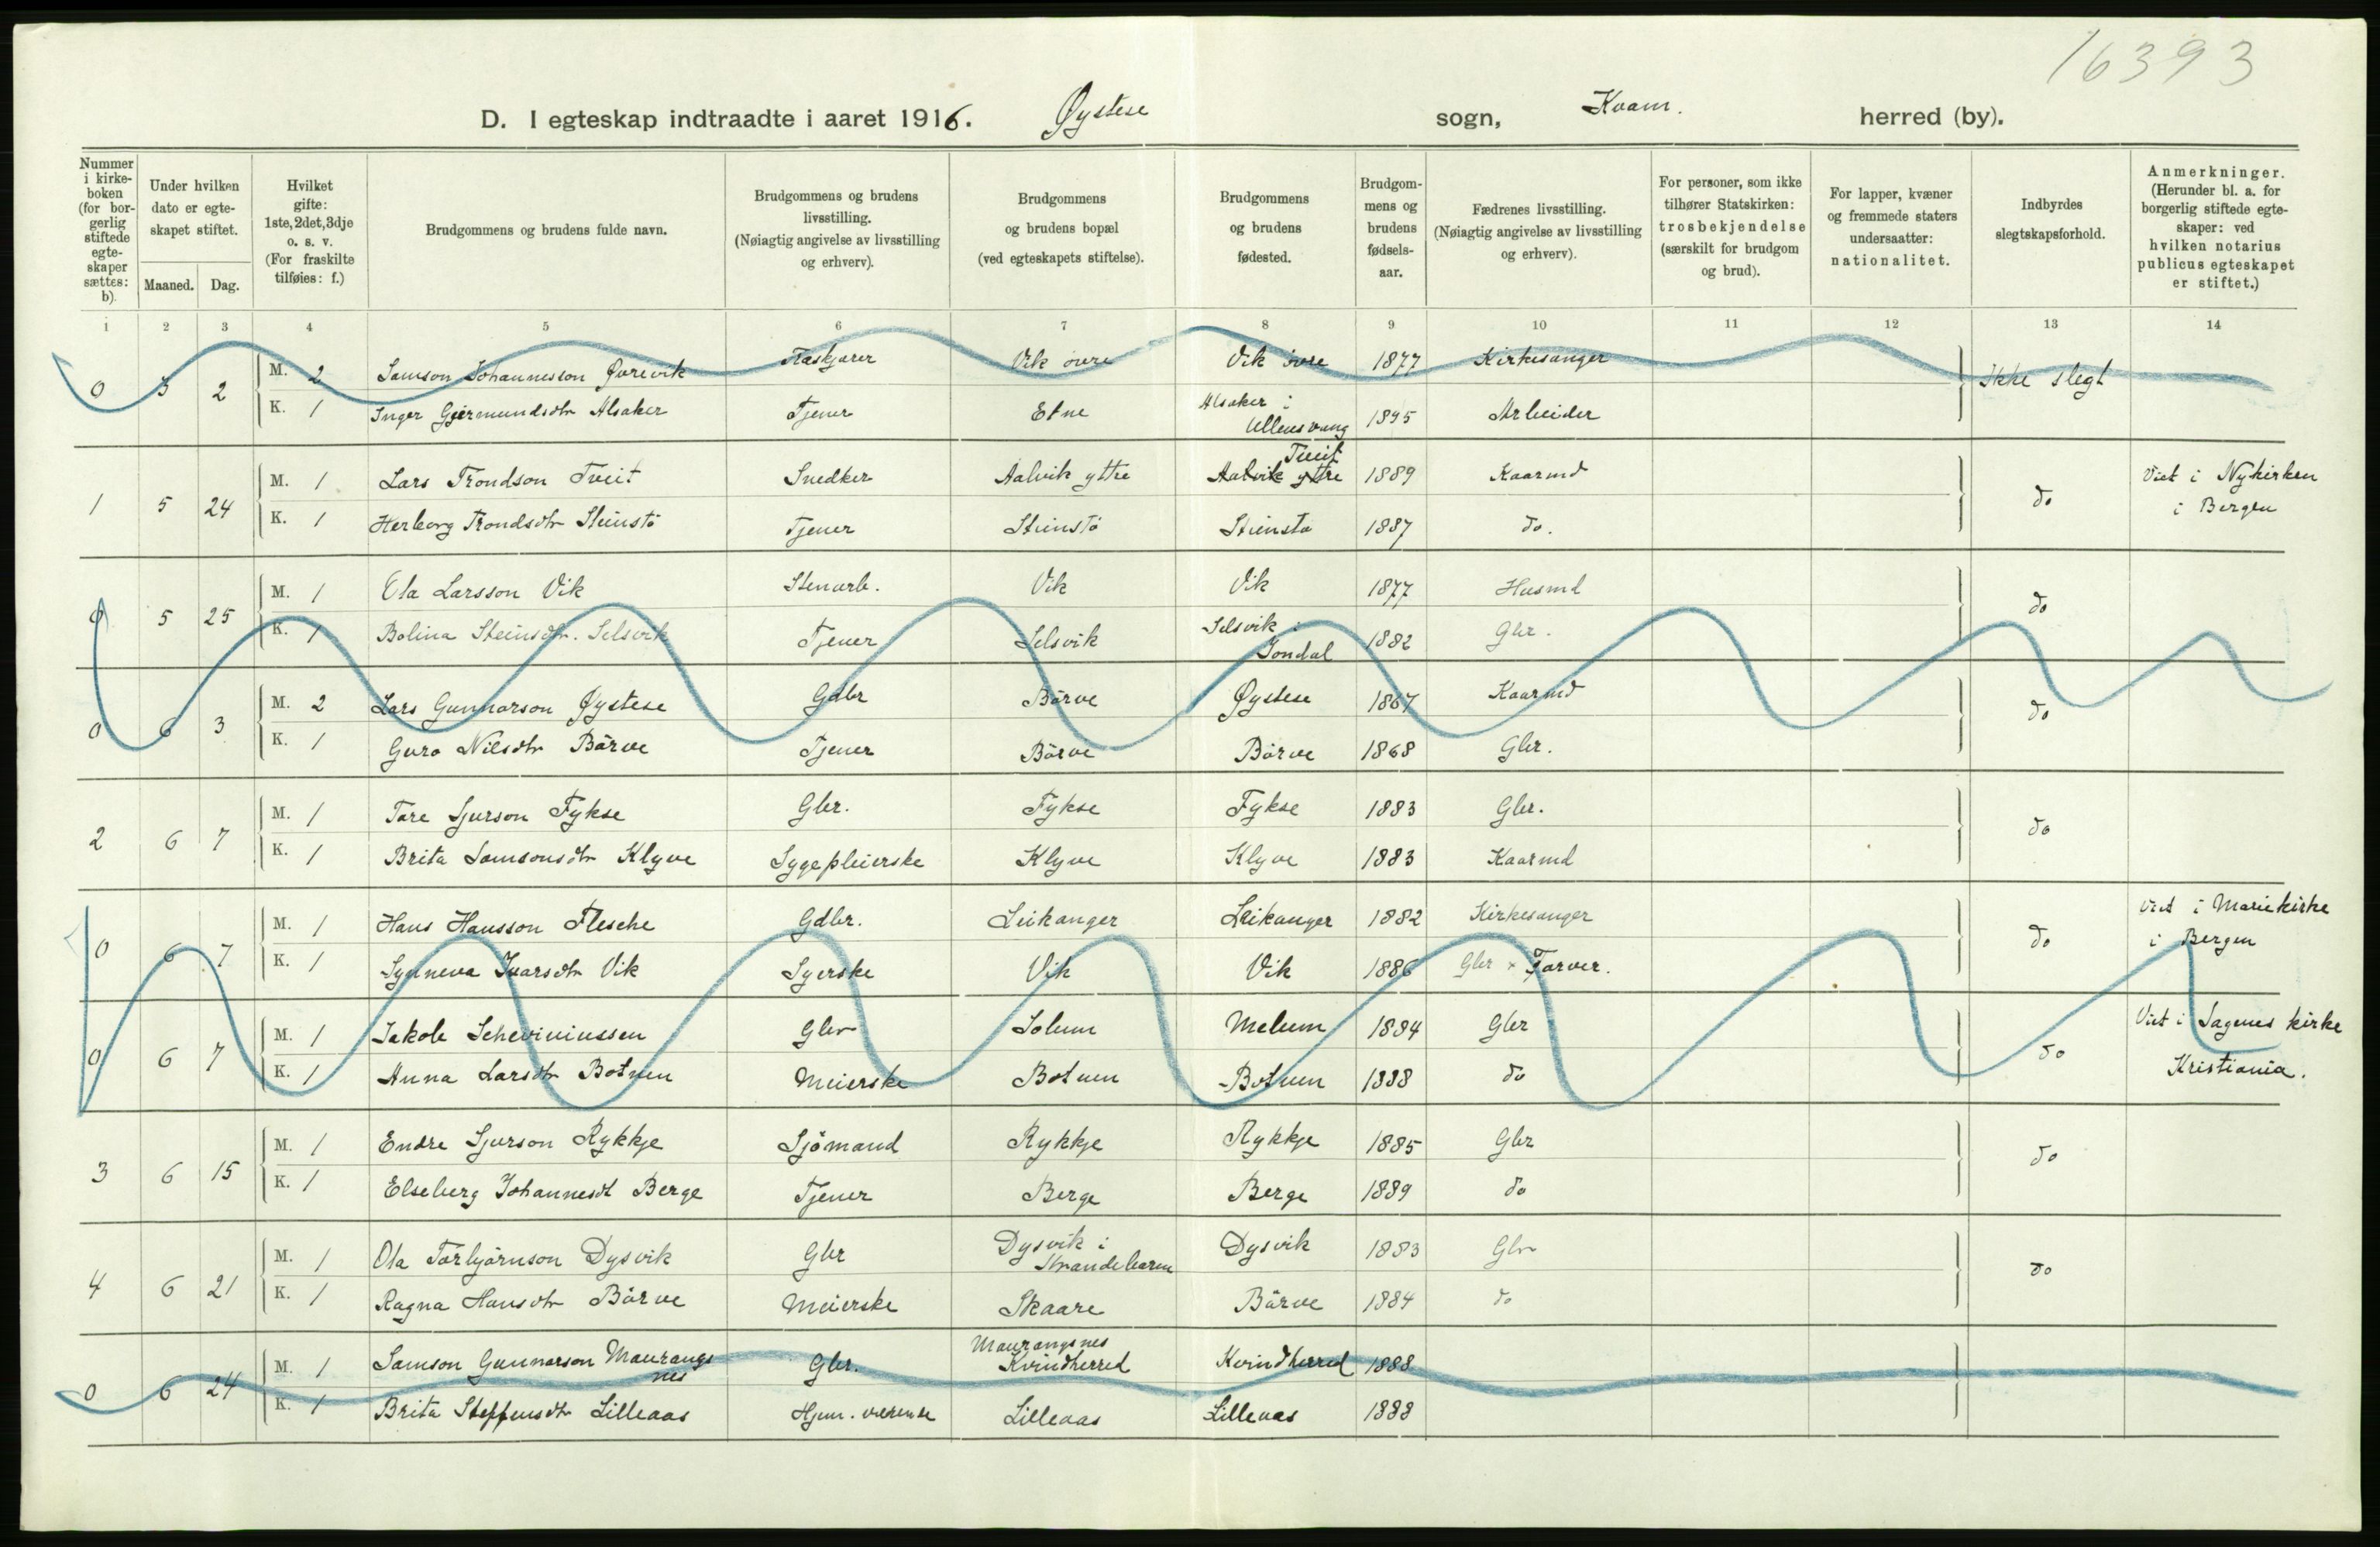 16393
D. I egteskap indtraadte i aaret 1916. Øystese sogn, Kvam. herred (by).
Nummer i kirke-boken (for bor-gerlig stiftede egte-skaper sættes: b)
Under hvilken dato er egte-skapet stiftet.
Maaned. Dag.
Hvilket gifte: 1ste, 2det, 3dje o. s. v. (For fraskilte tilføies: f.)
Brudgommens og brudens fulde navn.
Brudgommens og brudens livsstilling. (Nøiagtig angivelse av livsstilling og erhverv).
Brudgommens og brudens bopæl (ved egteskapets stiftelse).
Brudgommens og brudens fødested.
Brudgom-mens og brudens fødsels-aar.
Fædrenes livsstilling. (Nøiagtig angivelse av livsstilling og erhverv).
For personer, som ikke tilhører Statskirken: trosbekjendelse (særskilt for brudgom og brud).
For lapper, kvæner og fremmede staters undersaatter: nationalitet.
Indbyrdes slegtskapsforhold.
Anmerkninger. (Herunder bl. a. for borgerlig stiftede egte-skaper: ved hvilken notarius publicus egteskapet er stiftet.)
1 2 3 4 5 6 7 8 9 10 11 12 13 14
0 5 2 M. 2 Samson Johannesson Øvrevik Træskjærer Vik øvre Vik øvre 1877 Kirkesanger Ikke slegt
K. 1 Inger Gjermundsdtr Alsaker Tjener Etne Alsaker i Ullensvang 1895 Arbeider
1 5 24 M. 1 Lars Trondson Tveit Snedker Aalvik yttre Aalvik yttre Tveit 1889 Kaarmd do Viet i Nykirken i Bergen
K. 1 Herborg Trondsdtr Steinstö Tjener Steinstö Steinstö 1887 do.
0 5 25 M. 1 Ola Larsson Vik Stenarb. Vik Vik 1877 Husmd do
K. 1 Bolina Steinsdtr. Selsvik Tjener Selsvik Selsvik i Jondal 1882 Gbr.
0 6 3 M. 2 Lars Gunnarson Øystese Gdbr Börve Øystese 1867 Kaarmd do
K. 1 Guro Nilsdtr Börve Tjener Börve Börve 1868 Gbr.
2 6 7 M. 1 Tore Sjurson Fykse Gbr. Fykse Fykse 1883 Gbr. do
K. 1 Brita Samsonsdtr Klyve Sygepleierske Klyve Klyve 1883 Kaarmd
0 6 7 M. 1 Hans Hansson Flesche Gdbr. Leikanger Leikanger 1882 Kirkesanger do viet i Mariekirke i Bergen
K. 1 Synneva Ivarsdtr Vik Syerske Vik Vik 1886 Gbr × Farver.
0 6 7 M. 1 Jakob Scheviniussen Gbr Solum Melum 1884 Gbr do Viet i Sagenes kirke Kristiania.
K. 1 Anna Larsdtr Botnen Meierske Botnen Botnen 1888 do
3 6 15 M. 1 Endre Sjurson Rykkje Sjömand Rykkje Rykkje 1885 Gbr do
K. 1 Elseberg Johannesdt Berge Tjener Berge Berge 1889 do
4 6 21 M. 1 Ola Törbjörnson Dysvik Gbr Dysvik i Strandebarm Dysvik 1883 Gbr do
K. 1 Ragna Hansdtr Börve Meierske Skaare Börve 1884 do
0 6 24 M. 1 Samson Gunnarson Maurangsnes Gbr. Maurangsnes Kvindherred Kvindherred 1888
K. 1 Brita Steffensdtr Lilleaas Hjem. værende Lilleaas Lilleaas 1888